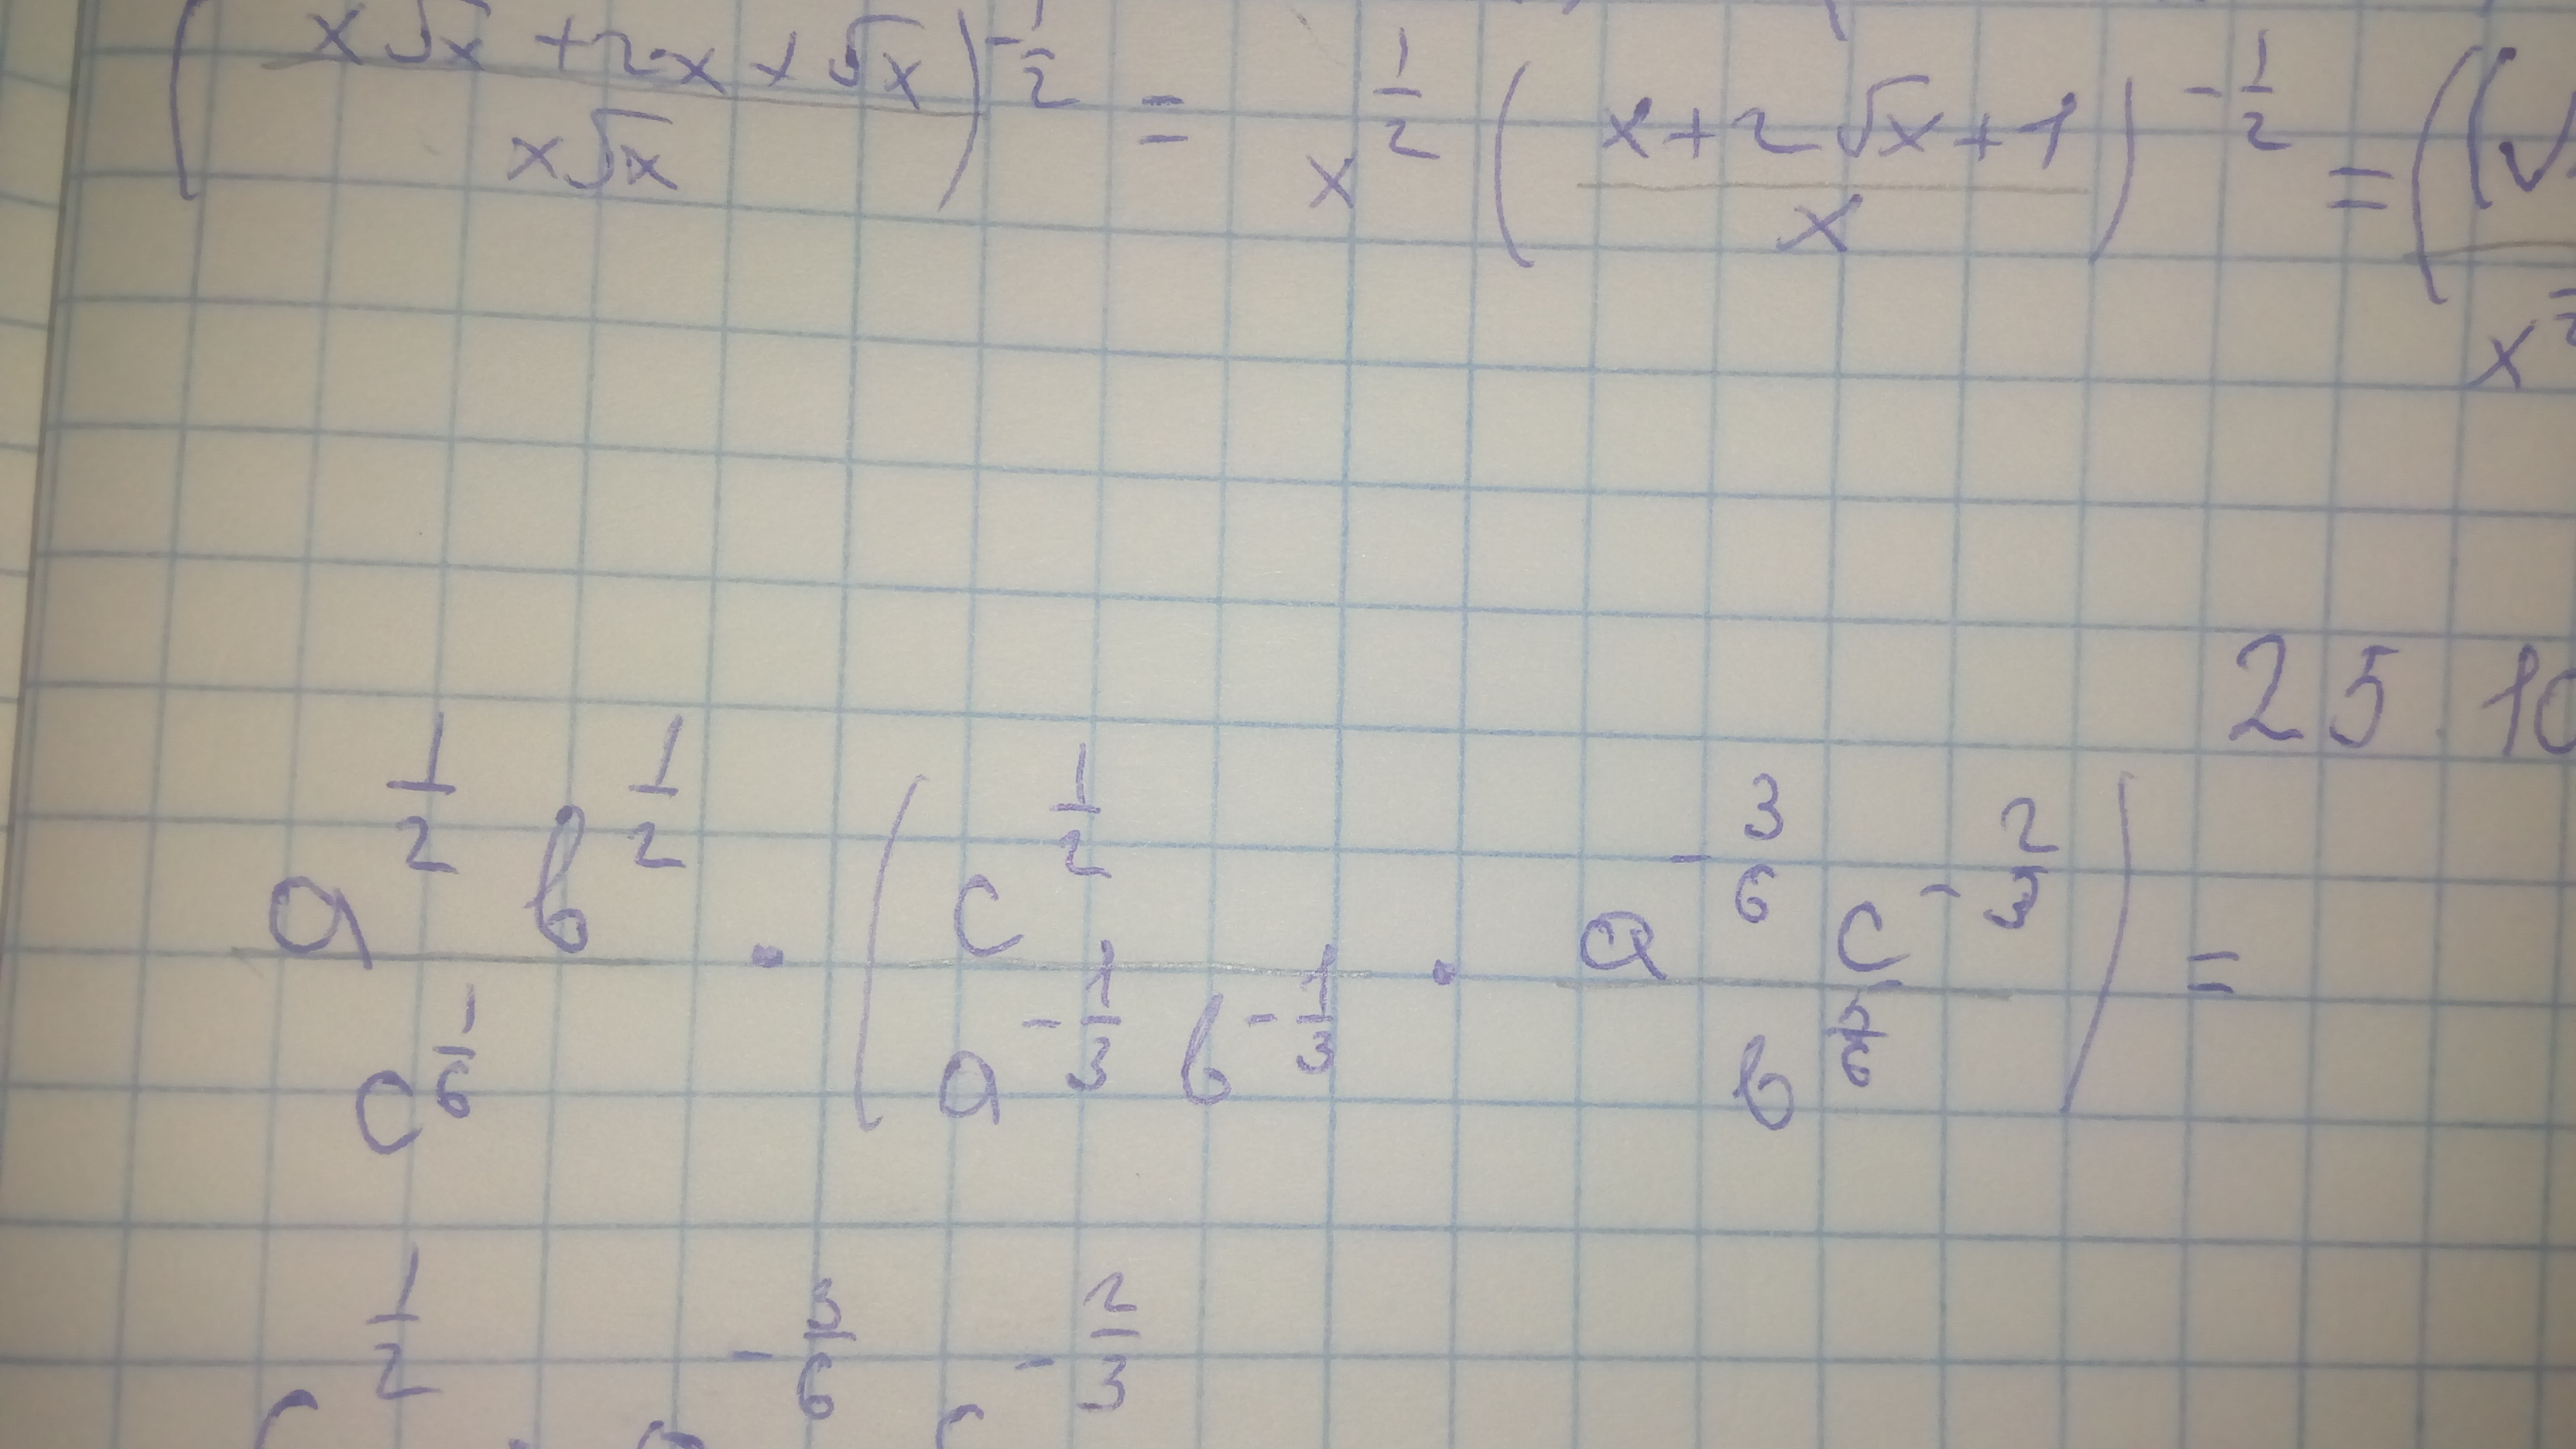 (x√x + 2x + √x / x√x)^(-1/2) = x^(1/2) (x + 2√x + 1 / x)^(-1/2) = ((√
x
25.10
a^(1/2) b^(1/2) / c^(1/6) · (c^(1/2) / a^(-1/3) b^(-1/3) · a^(-3/6) c^(-2/3) / b^(5/6)) =
c^(1/2) · a^(-3/6) c^(-2/3)